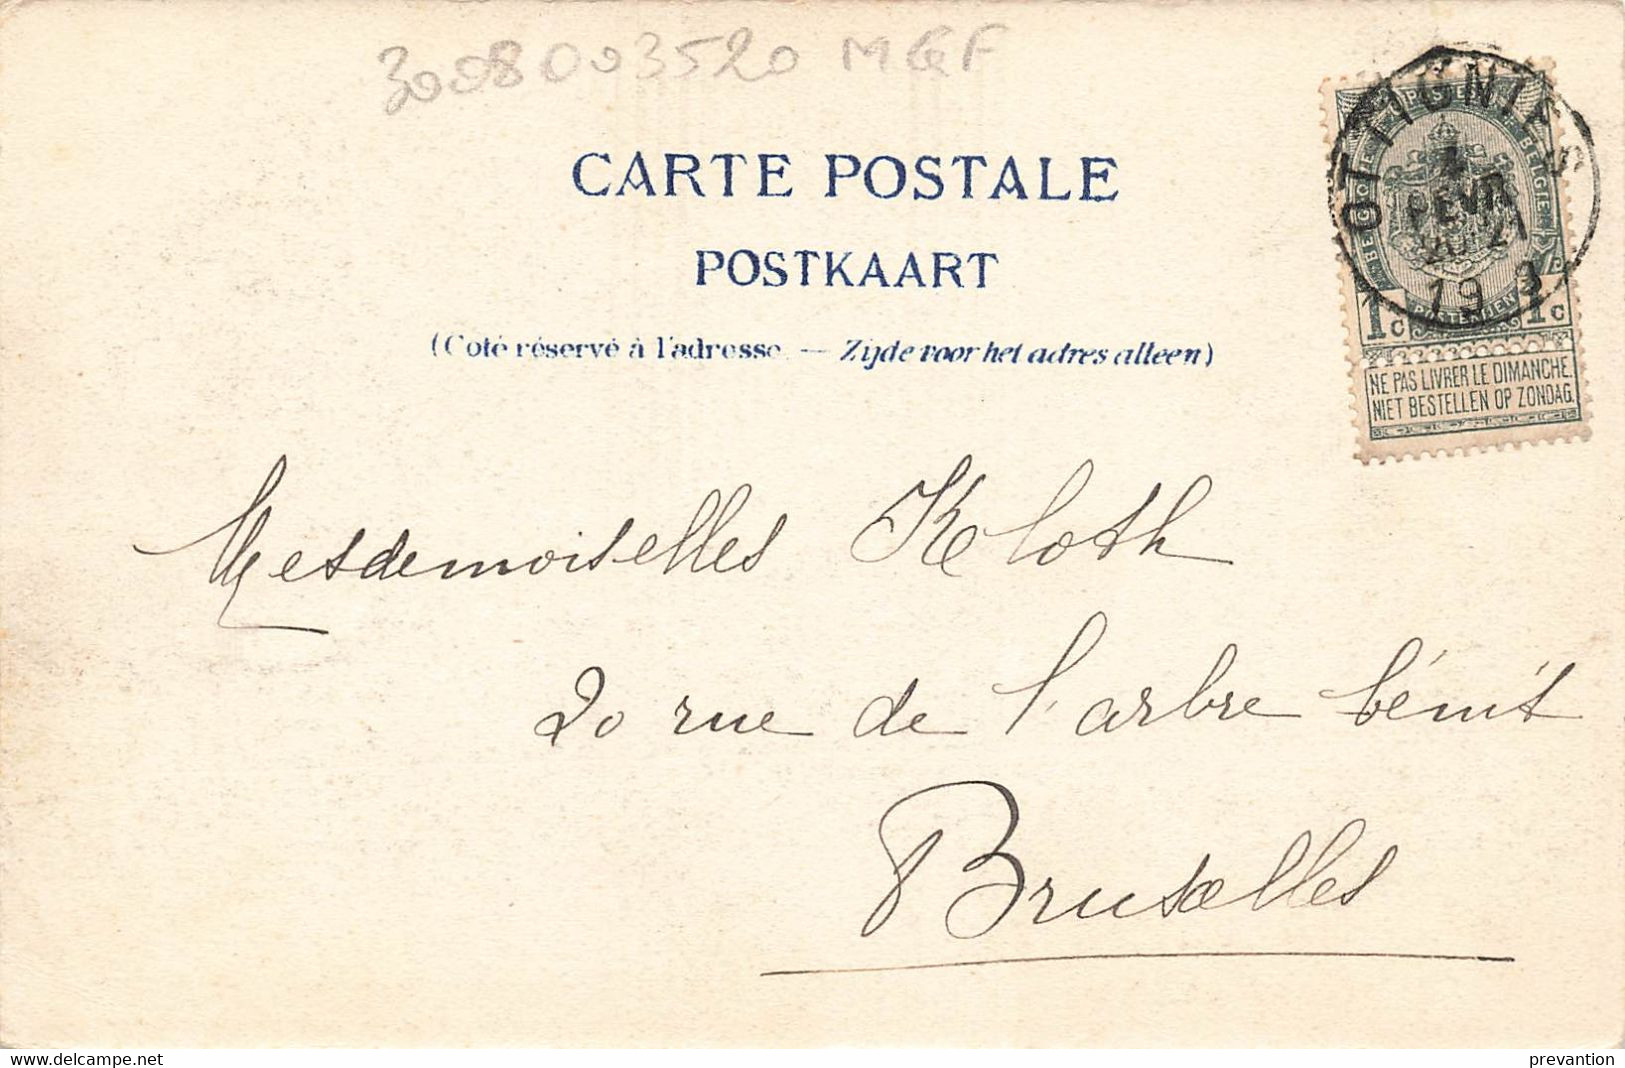 3008003520 MGF
CARTE POSTALE
POSTKAART
(Coté réservé à l'adresse. — Zijde voor het adres alleen)
OTTIGNIES
FEVR
19 3
POSTES BELGIQUE
BELGIE POSTERIJEN
1c 1c
NE PAS LIVRER LE DIMANCHE.
NIET BESTELLEN OP ZONDAG.
Mesdemoiselles Kloth
20 rue de l'arbre bénit
Bruxelles
www.delcampe.net
prevantion